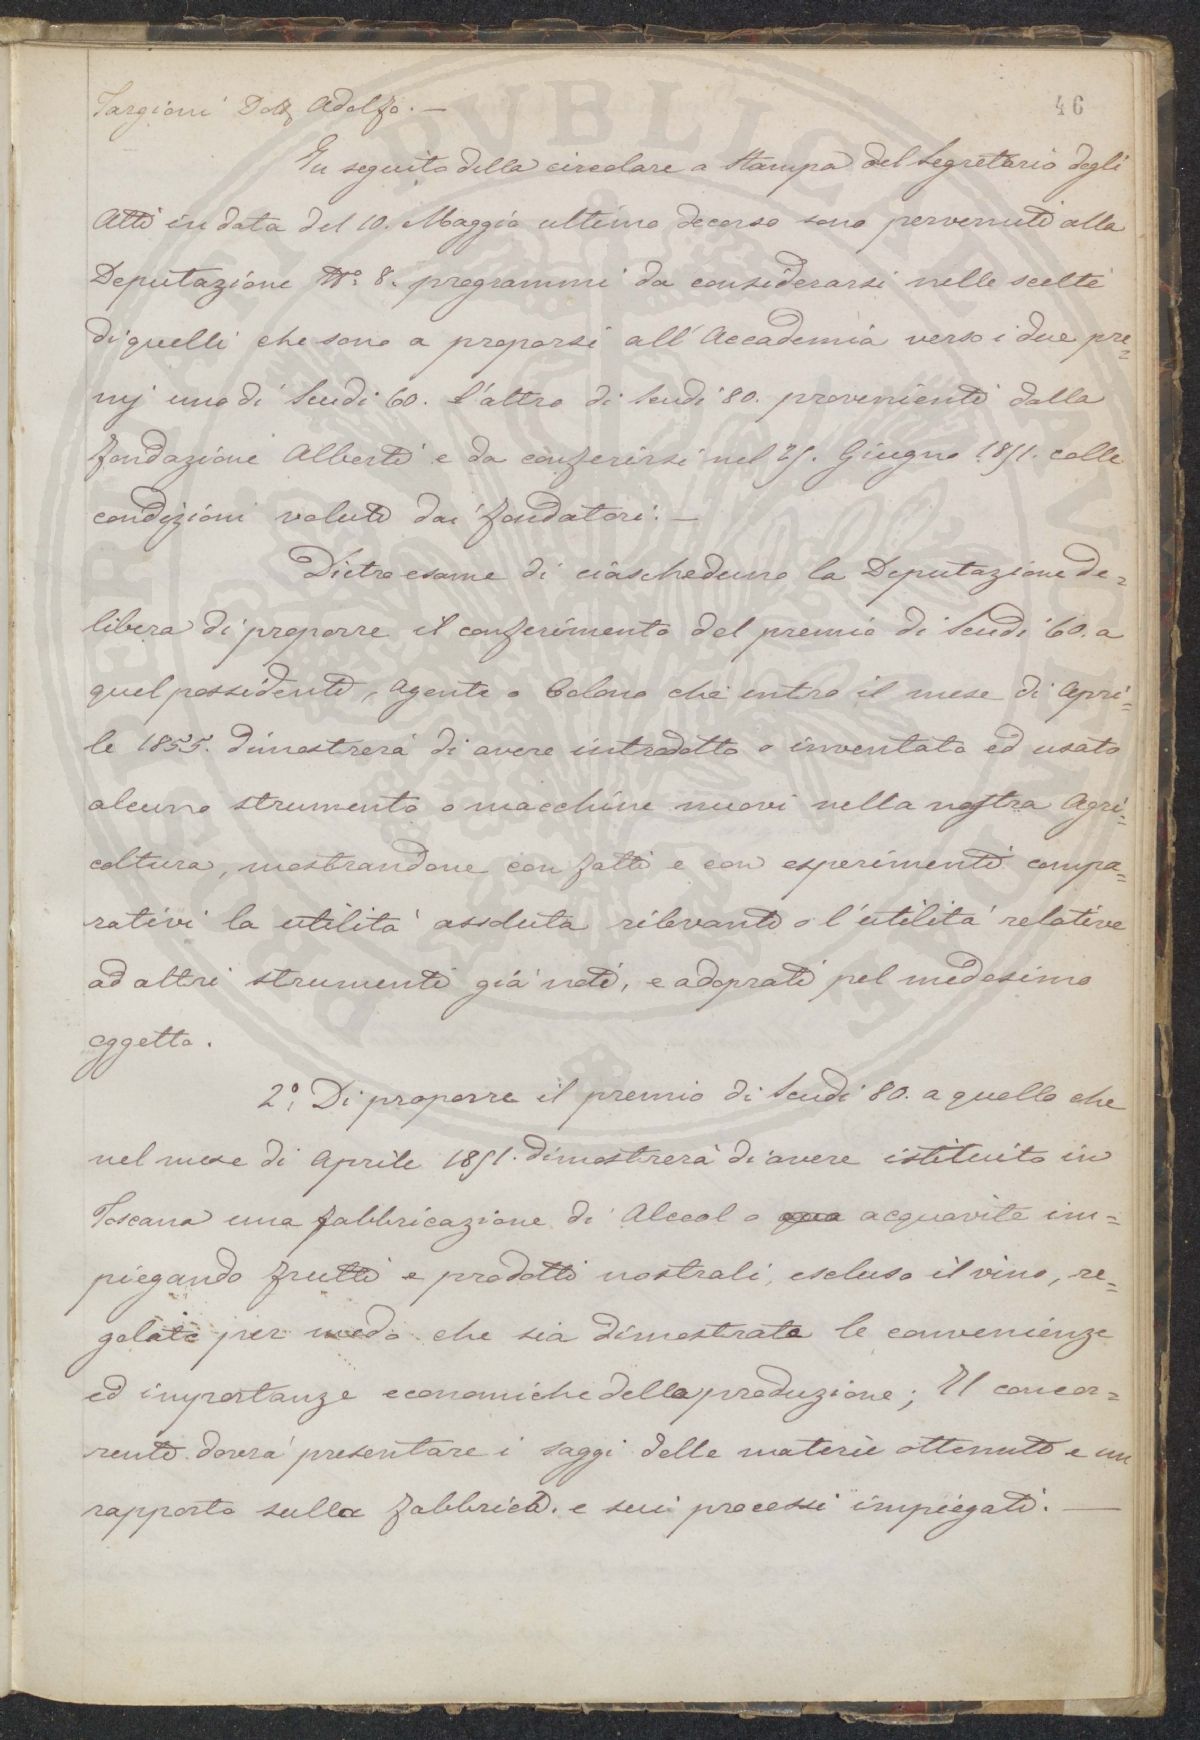 46
Targioni Dott Adolfo. —
In seguito della circolare a Stampa del Segretario degli
Atti in data del 10. Maggio ultimo decorso sono pervenuti alla
Deputazione N.° 8. programmi da considerarsi nelle scelte
di quelli che sono a proporsi all' Accademia verso i due pre=
mj uno di Scudi 60. l'altro di Scudi 80. provenienti dalla
fondazione Alberti e da conferirsi nel Giugno colle
condizioni volute dai fondatori. —
Dietro esame di ciascheduno la Deputazione de=
libera di proporre il conferimento del premio di Scudi 60. a
quel possidente, agente o Colono che entro il mese di Apri=
le 1855. dimostrerà di avere introdotto o inventato ed usato
alcuno strumento o macchine nuovi nella nostra Agri=
coltura, mostrandone con fatti e con esperimenti compa=
rativi la utilità assoluta rilevante o l'utilità relative
ad altri strumenti già noti, e adoprati pel medesimo
oggetto.
2°. Di proporre il premio di Scudi 80. a quello che
nel mese di Aprile dimostrerà di avere istituito in
Toscana una fabbricazione di Alcool o acquavite im=
piegando frutti e prodotti nostrali, escluso il vino, re=
golate per modo che sia dimostrata le convenienze
ed importanze economiche della produzione; Il concor=
rente dovrà presentare i saggi delle materie ottenute e un
rapporto sulla fabbrica. e sui processi impiegati. —
PVBLICAE